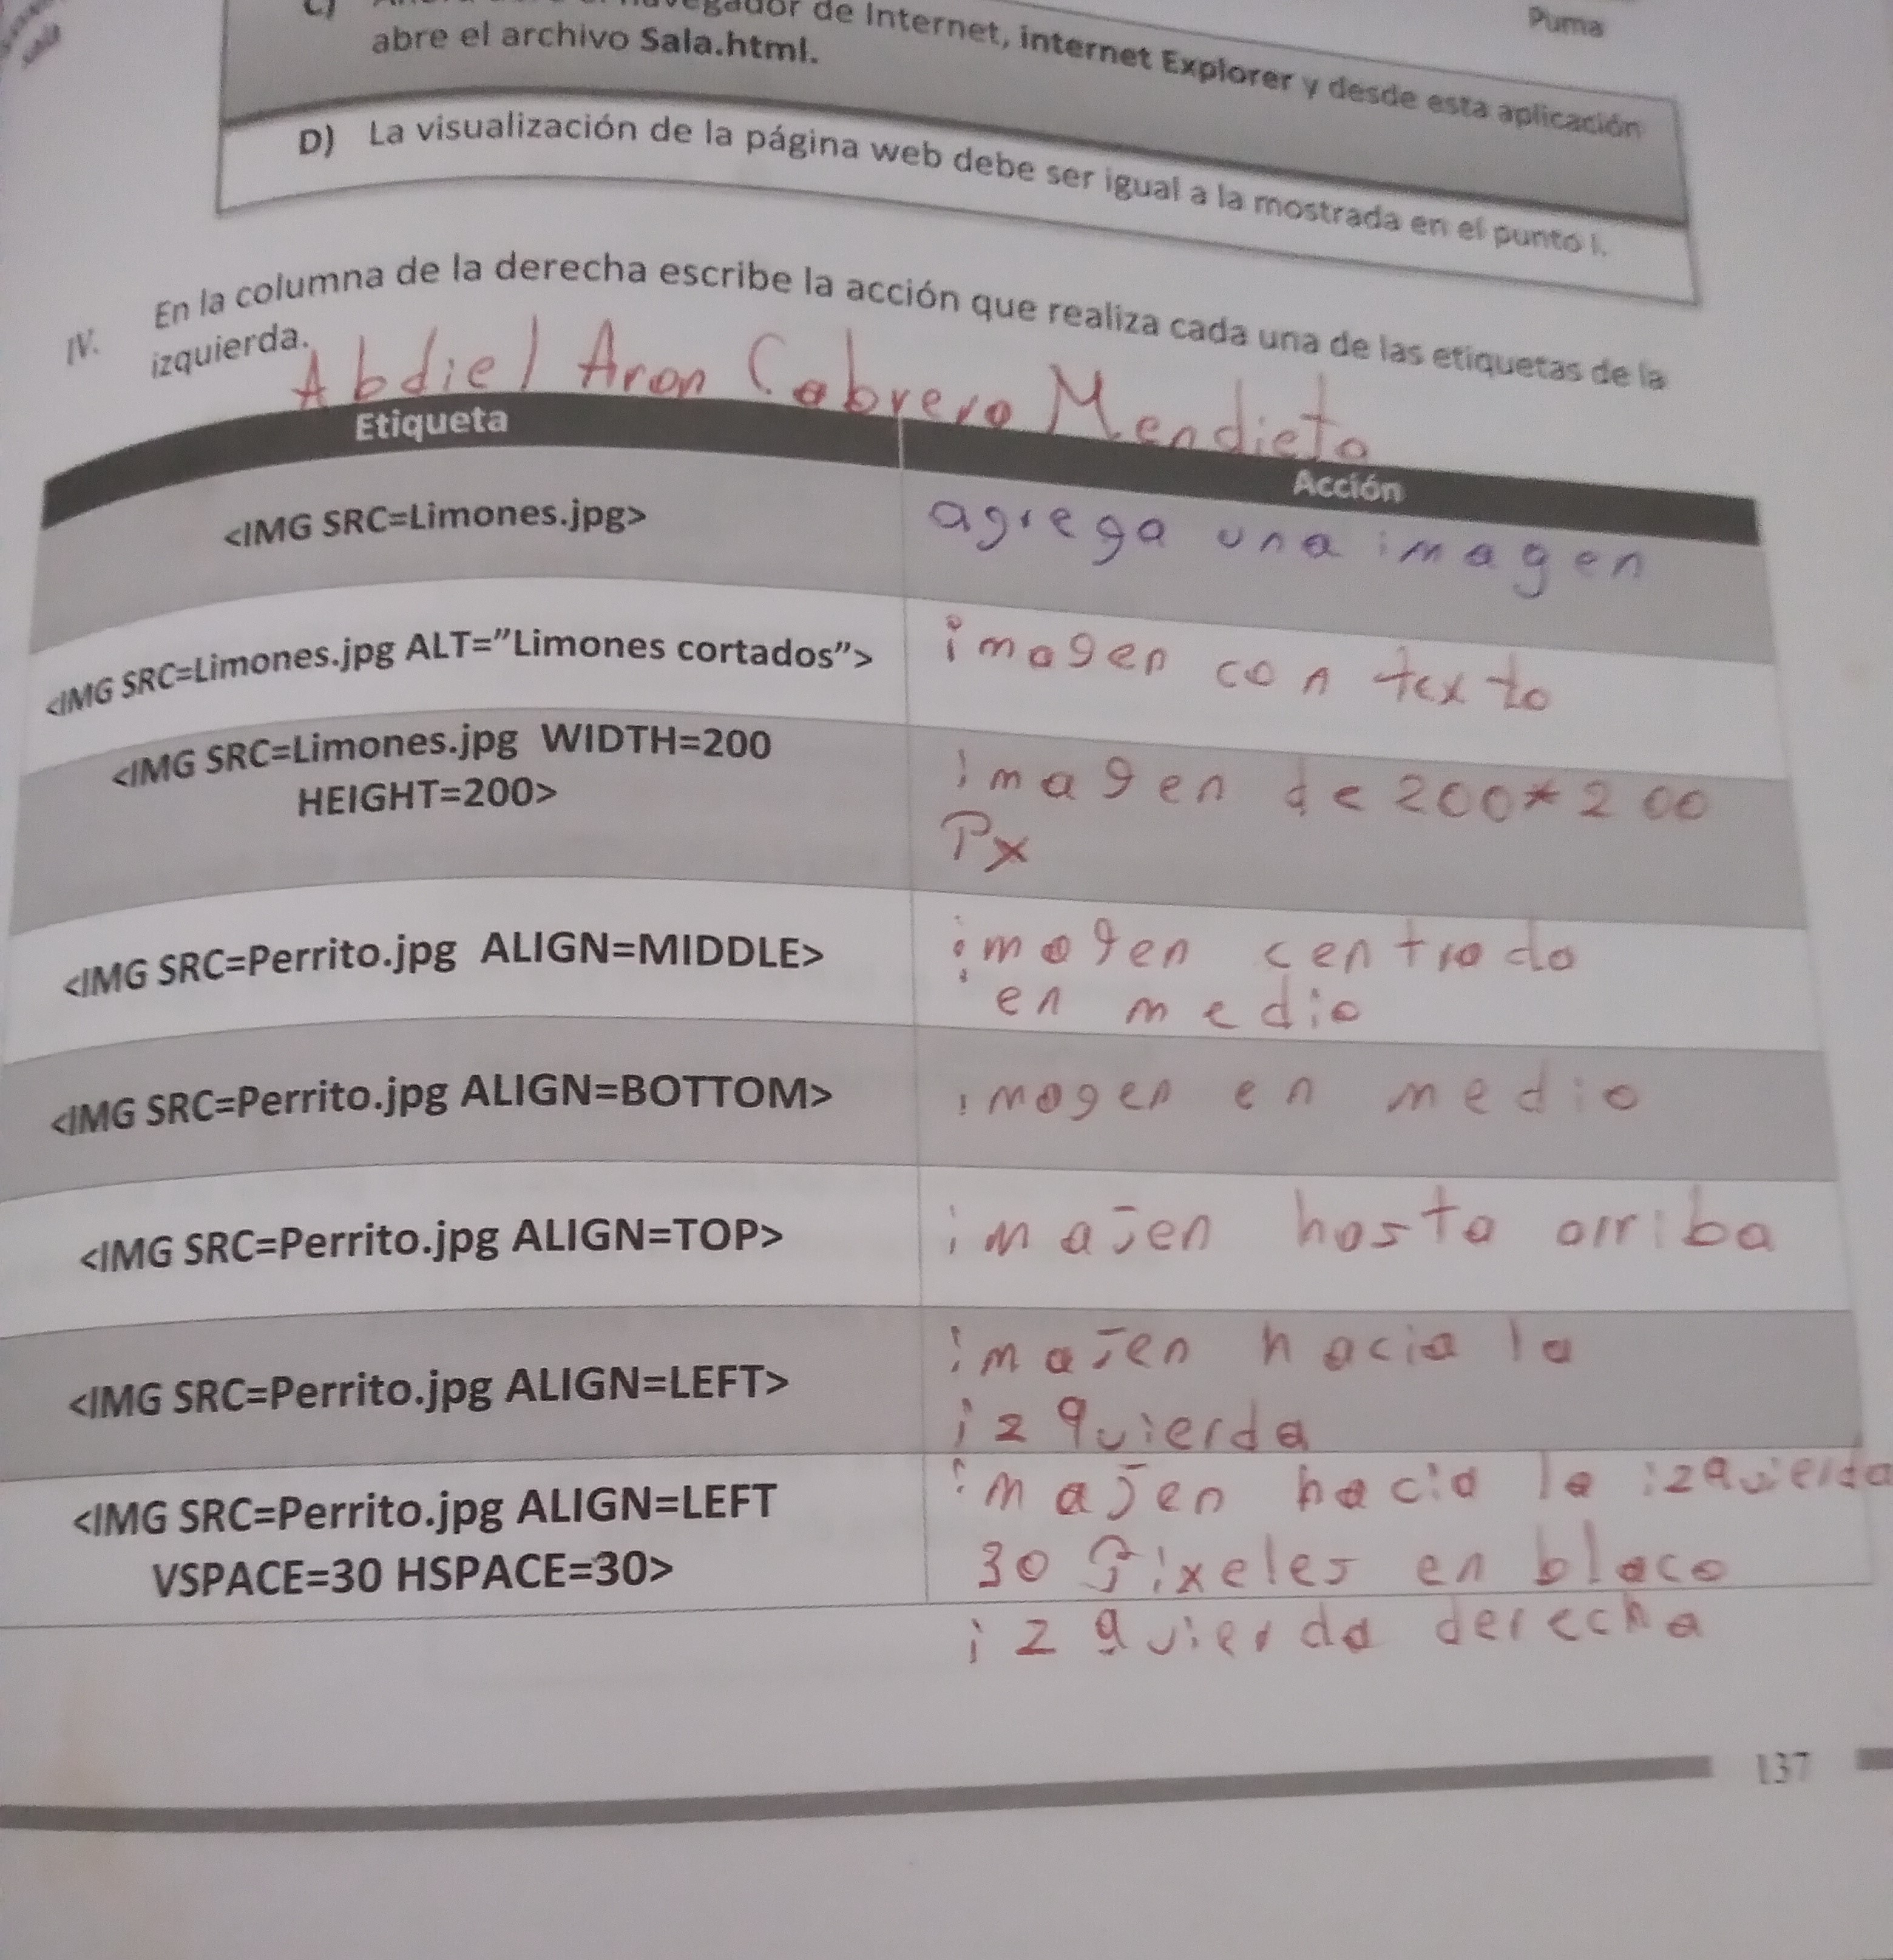 Puma
de Internet, internet Explorer y desde esta aplicación
abre el archivo Sala.html.
D) La visualización de la página web debe ser igual a la mostrada en el punto I.
IV. En la columna de la derecha escribe la acción que realiza cada una de las etiquetas de la
izquierda.
Abdiel Aron Cabrera Mendieta
Etiqueta
Acción
<IMG SRC=Limones.jpg>
agrega una imagen
<IMG SRC=Limones.jpg ALT="Limones cortados">
imagen con texto
<IMG SRC=Limones.jpg WIDTH=200
HEIGHT=200>
imagen de 200*200
Px
<IMG SRC=Perrito.jpg ALIGN=MIDDLE>
imagen centrada
en medio
<IMG SRC=Perrito.jpg ALIGN=BOTTOM>
imagen en medio
<IMG SRC=Perrito.jpg ALIGN=TOP>
imajen hasta arriba
<IMG SRC=Perrito.jpg ALIGN=LEFT>
imajen hacia la
izquierda
<IMG SRC=Perrito.jpg ALIGN=LEFT
VSPACE=30 HSPACE=30>
imajen hacia la izquierda
30 Pixeles en blaco
izquierda derecha
137